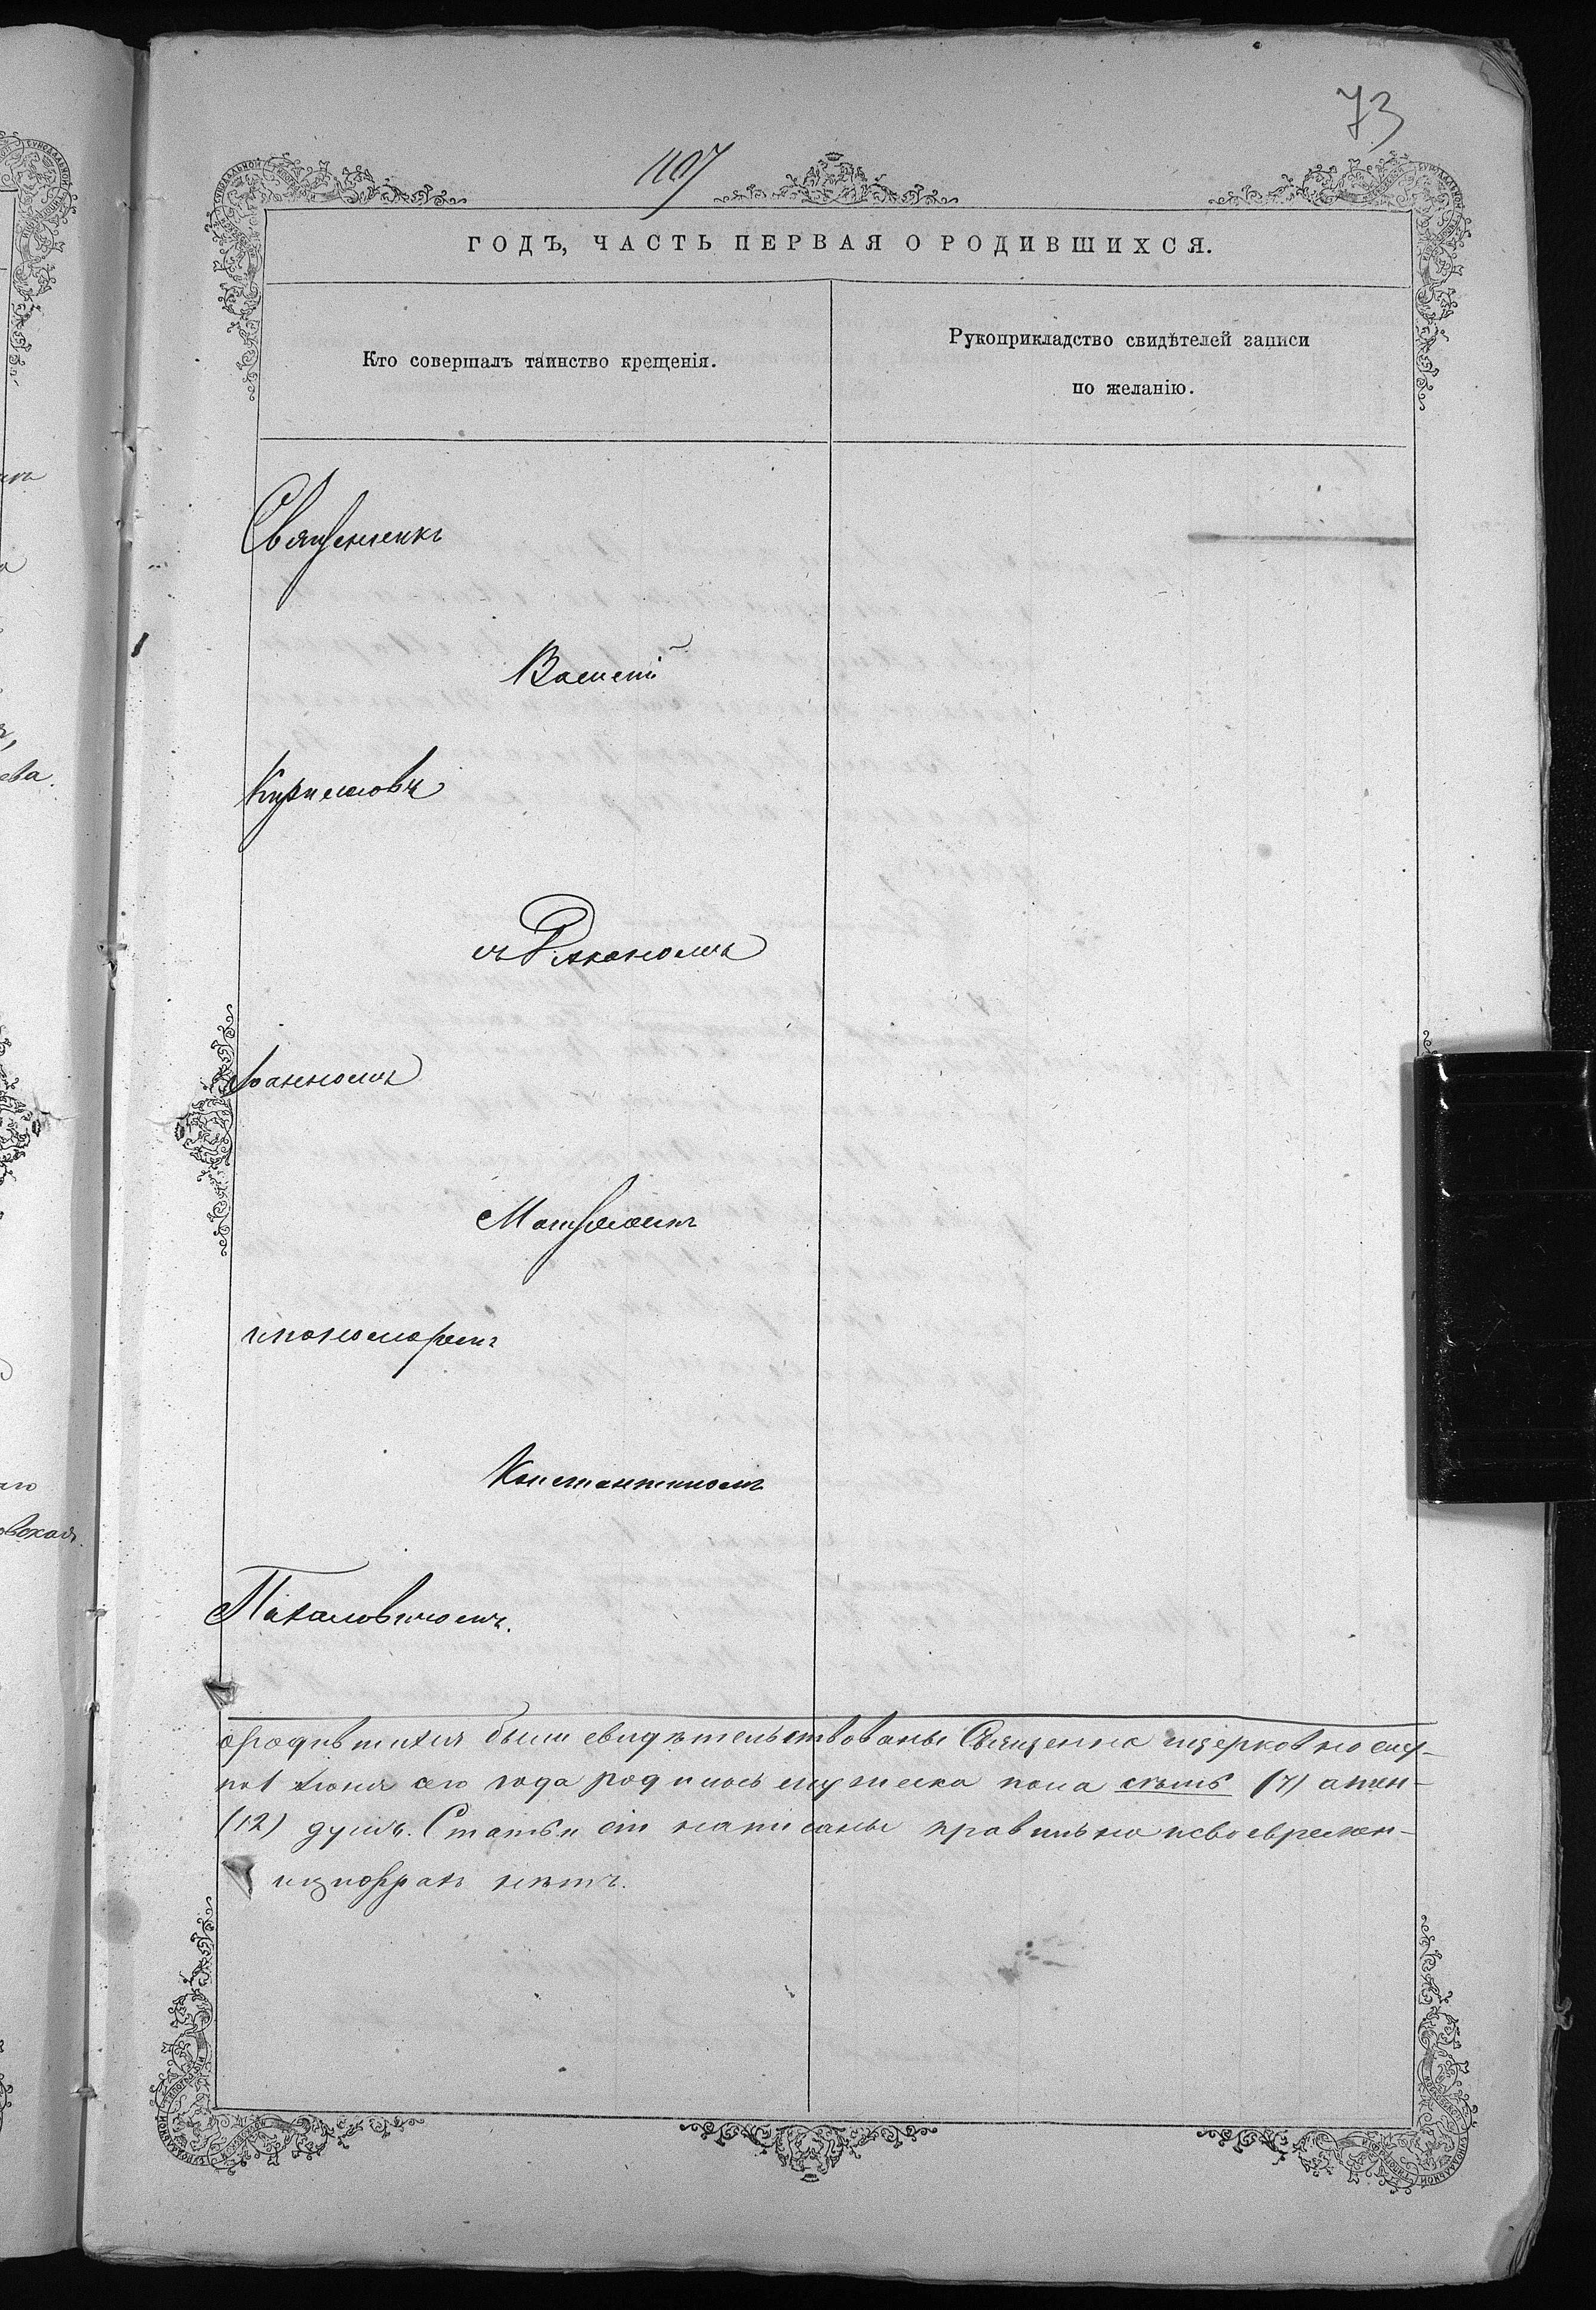 73
1107
ГОДЪ, ЧАСТЬ ПЕРВАЯ О РОДИВШИХСЯ.
Кто совершалъ таинство крещенія.
Рукоприкладство свидѣтелей записи
по желанію.
Священникъ
Василій
Кирилловъ
съ Діакономъ
Іоанномъ
и пономаремъ
Константиномъ
о родившихся были свидѣтельствованы Священно и церковно слу-
по 1 Іюня сего года родилось мужеска пола семь (7) а жен-
(12) душъ. Статьи сіи написаны правильно и своевремен-
нѣтъ.